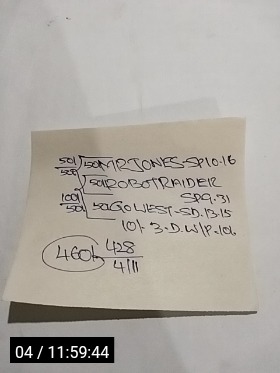 50/ 50/ MR JONES-SP10.16
50/
50/ ROBOTRAIDER
SP9.31
100/ 50/ GO WEST-SD.13.15
50/
10/- 3.D.W/P.106
460/- 428
4/11
04 / 11:59:44